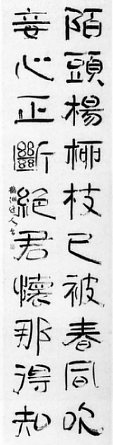 陌頭楊柳枝已被春風吹
妾心正斷絕君懷那得知